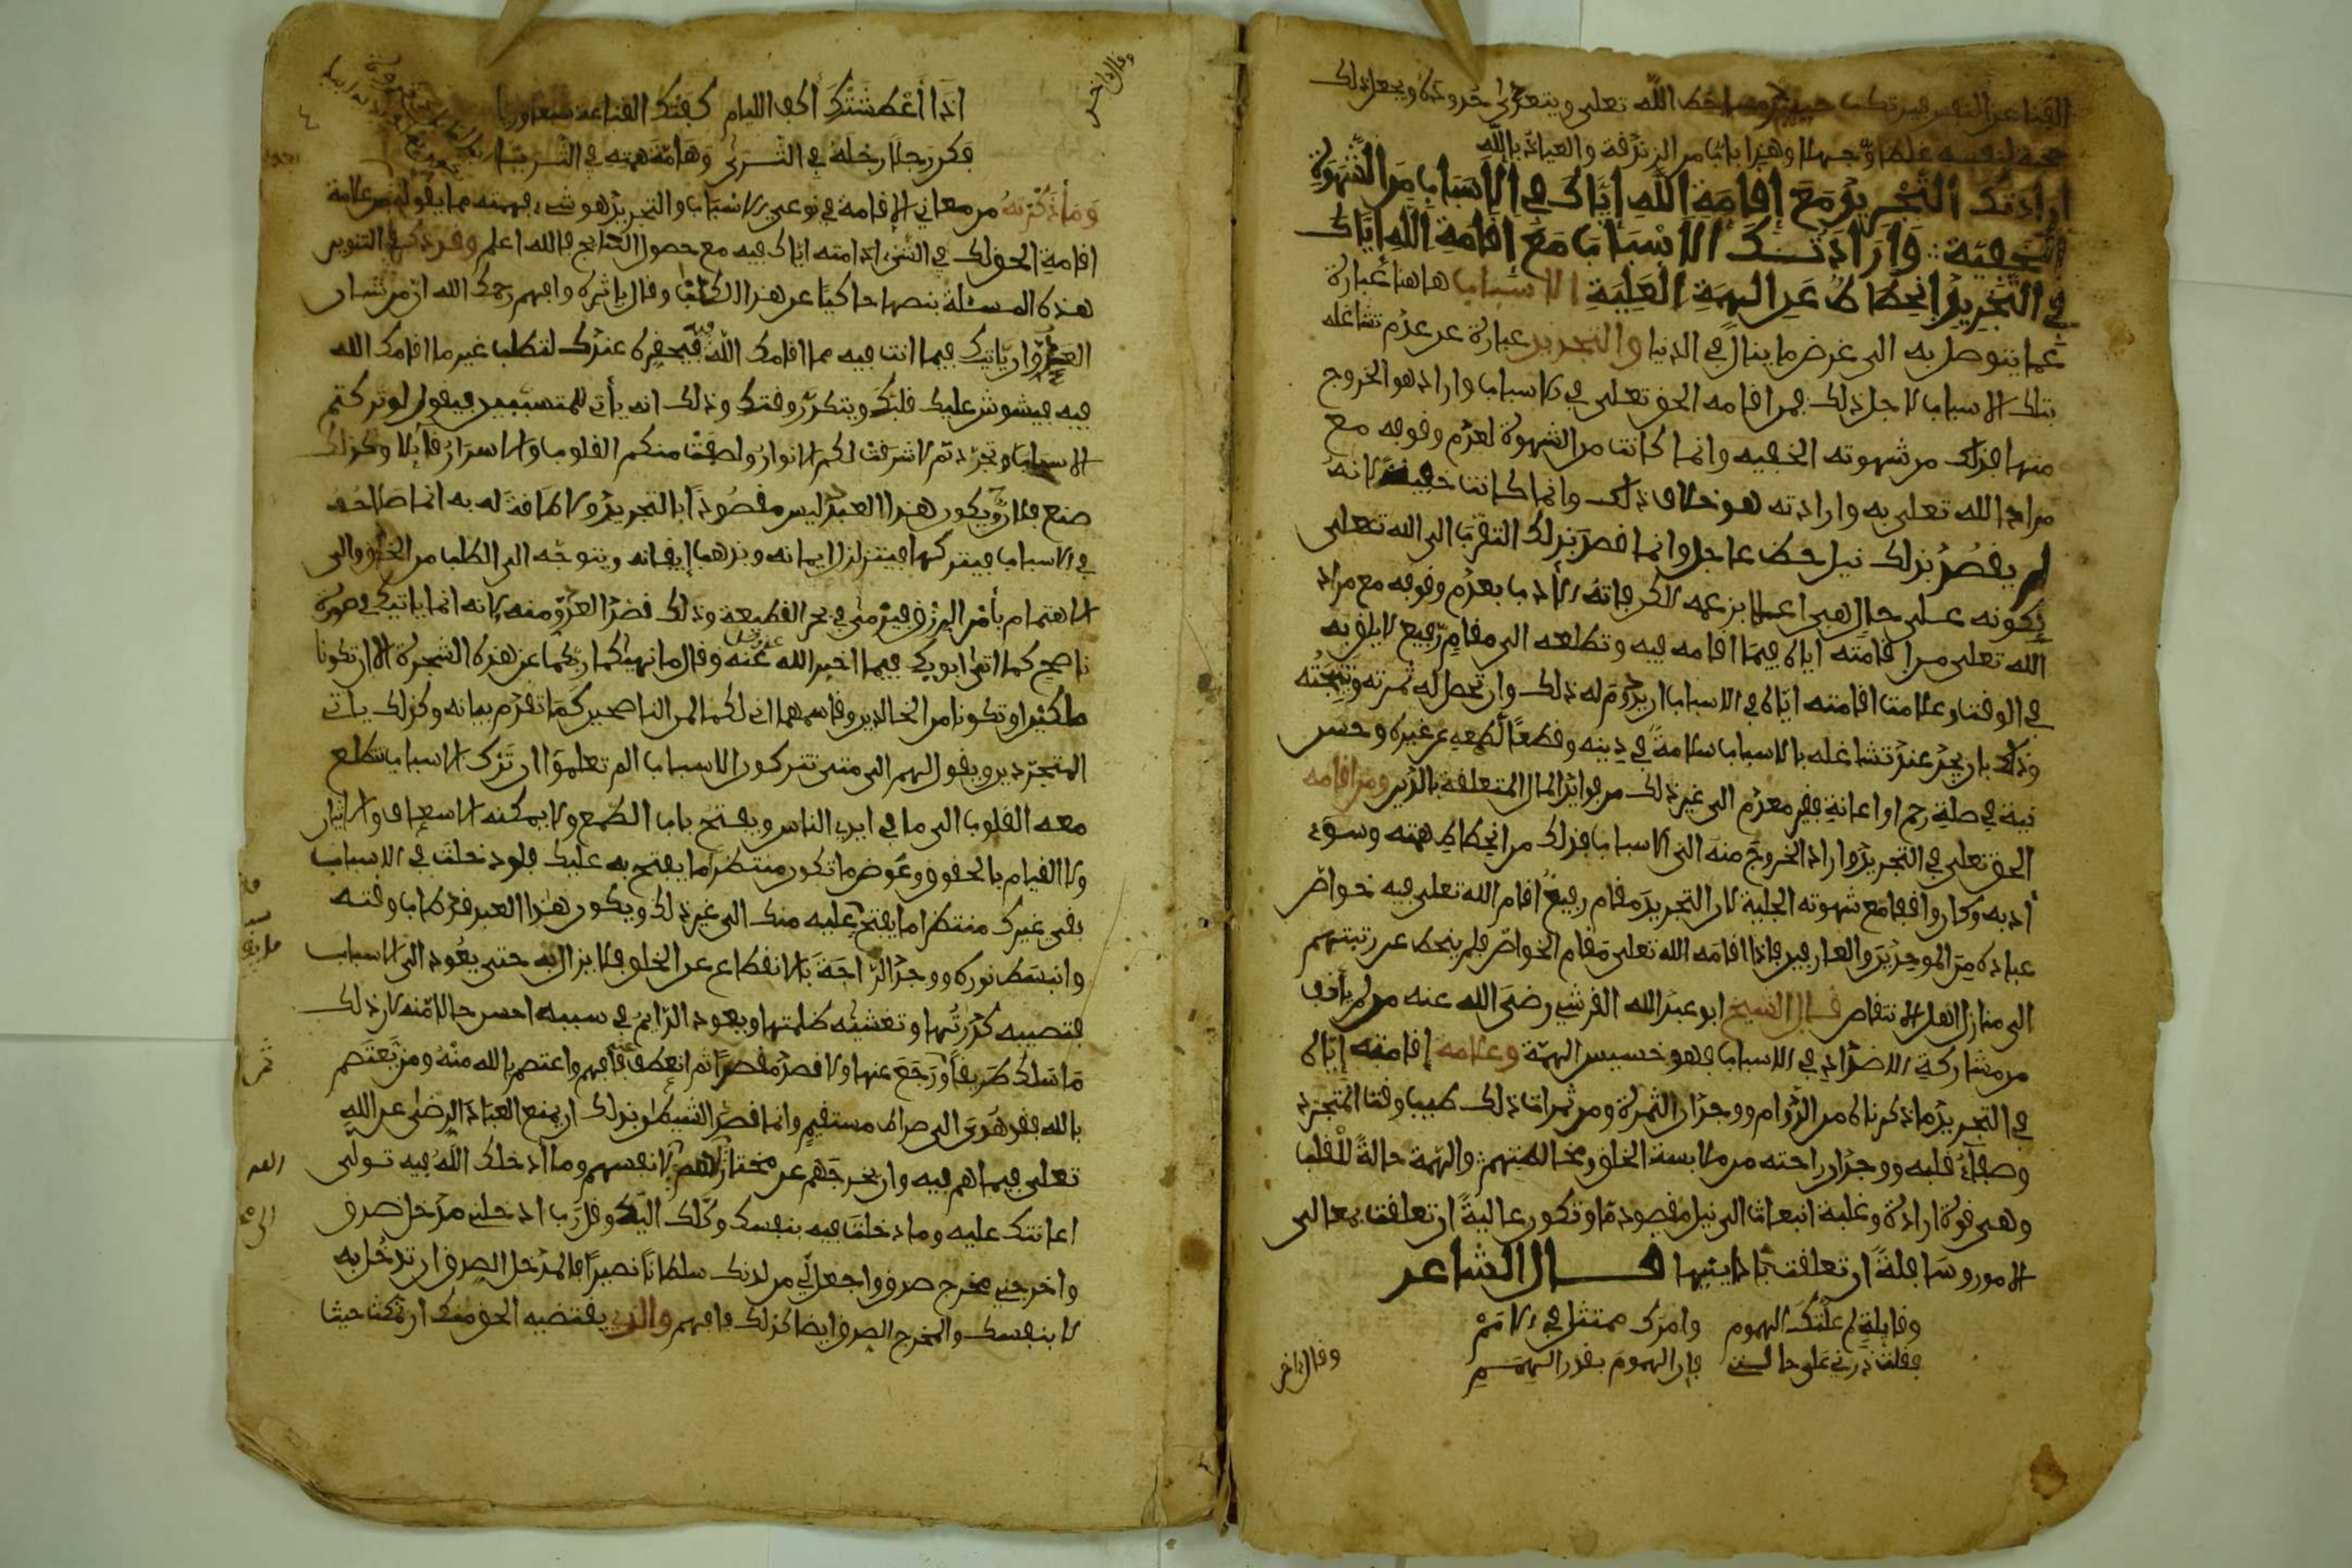 القناع عن النفس فيرتكب حينئذ مساخط الله تعلى ويتعدى حدوده ويجعل ذلك
حجة لنفسه علما وجهلا وهذا باب من الزندقة والعياذ بالله
ارادتك التجريد مع إقامة الله إياك في الاسباب من الشهوة
الخفية وارادتك الاسباب مع إقامة الله اياك
في التجريد انحطاط عن الهمة العلية الاسباب هاهنا عبارة
عما يتوصل به الى غرض ما ينال في الدنيا والتجريد عبارة عن عدم تشاغله
بتلك الاسباب لاجل ذلك فمن اقامه الحق تعلى في الاسباب واراد هو الخروج
منها فذلك من شهوته الخفيه وانما كانت من الشهوة لعدم وقوفه مع
مراد الله تعلى به وارادته هو خلاف ذلك وانما كانت خفية لانه
لم يقصد بذلك نيل حظ عاجل وانما قصد بذلك التقرب الى الله تعلى
بكونه على حال هي اعلا بزعمه لاكن فاته الأدب بعدم وقوفه مع مراد
الله تعلى من اقامته اياه فيما اقامه فيه وتطلعه الى مقام رفيع لا يليق به
في الوقت وعلامت اقامته اياه في الاسباب ان يدوم له ذلك وان تحصل له ثمرته ونتيجته
وذلك بان يجد عند تشاغله بالاسباب سلامة في دينه وقطعا لطمعه عن غيره وحسن
نية في صلة رحم او اعانة فقير معدم الى غير ذلك من فوائد المال المتعلقة بالدين ومن اقامه
الحق تعلى في التجريد واراد الخروج منه الى الاسباب فذلك من انحطاط همته وسوء
أدبه وكان واقفا مع شهوته الجلية لان التجريد مقام رفيع اقام الله تعلى فيه خواص
عباده من الموحدين والعارفين فاذا اقامه الله تعلى مقام الخواص فلم ينحط عن رتبتهم
الى منازل اهل الانتقاص قال الشيخ ابو عبد الله القرشي رضى الله عنه من لم يأنف
من مشاركة الاضداد في الاسباب فهو خسيس الهمة وعلامه إقامته إياه
في التجريد ما ذكرناه من الدوام ووجدان الثمرة ومن ثمرات ذلك طيب وقت المتجرد
وصفاء قلبه ووجدان راحته من ملابسة الخلق ومخالطتهم والهمة حالة للقلب
وهي قوة ارادة وغلبة انبعاث الى نيل مقصود ما وتكون عالية ان تعلقت بمعالى
الامور وسافلة ان تعلقت بأدانيها قال الشاعر
وقايلة لم علتك الهموم وامرك ممتثل في الامم
فقلت ذرني على حالتي فإن الهموم بقدر الهمم
وقال اخر
وقال اخر
اذا أعطشتك أكف الليام كفتك القناعة شبعا وريا
فكن رجلا رجله في الثرى وهامة همته في الثريا
وما ذكرته من معاني الاقامة في نوعي الاسباب والتجريد هو شيء فهمته مما يقوله من علامة
اقامة الحق لك في الشيء ادامته اياك فيه مع حصول النتايج والله اعلم وقد ذكر في التنوير
هذه المسئلة بنصها حاكيا عن هذا الكتاب وقال باثره وافهم رحمك الله ان من شان
العدو ان ياتيك فيما انت فيه مما اقامك الله فيه فيحقره عندك لتطلب غير ما اقامك الله
فيه فيشوش عليك قلبك ويتكدر وقتك وذلك انه يأتي للمتسببين فيقول لو تركتم
الاسباب وتجردتم لاشرقت لكم الانوار ولصفت منكم القلوب والاسرار قايلا وكذلك
صنع فلان ويكون هذا العبد ليس مقصودا بالتجريد ولا طاقة له به انما صلاحه
في الاسباب فيتركها فيتزلزل ايمانه ويذهب إيقانه ويتوجه الى الطلب من الخلق والى
الاهتمام بأمر الرزق فيرمى في بحر القطيعة وذلك قصد العدو منه لانه انما ياتيك في صورة
ناصح كما اتى ابويك فيما اخبر الله عز وجل عنه وقال ما نهيكما ربكما عن هذه الشجرة الا ان تكونا
ملكين او تكونا من الخالدين وقاسمهما اني لكما لمن الناصحين كما تقدم بيانه وكذلك ياتي
المتجردين ويقول لهم الى متى تتركون الاسباب الم تعلموا ان ترك الاسباب تتطلع
معه القلوب الى ما في ايدي الناس ويفتح باب الطمع ولا يمكنه الاسعاف والايثار
ولا القيام بالحقوق وعوض ما تكون منتظرا ما يفتح به عليك فلو دخلت في الاسباب
بقي غيرك منتظرا ما يفتح عليه منك الى غير ذلك ويكون هذا العبد قد طاب وقته
وانبسط نوره ووجد الراحة بالانقطاع عن الخلق فلا يزال به حتى يعود الى الاسباب
فتصيبه كدرتها وتغشيه ظلمتها ويعود الدائم في سببه احسن حالا منه لان ذلك
ما سلك طريقا ورجع عنها ولا قصد مقصدا ثم انعطف عنه فافهم واعتصم بالله منه ومن يعتصم
بالله فقد هدى الى صراط مستقيم وانما قصد الشيطان بذلك ان يمنع العباد الرضى عن الله
تعلى فيما هم فيه وان يخرجهم عن مختار الله لهم الى مختارهم لانفسهم وما أدخلك الله فيه تولى
اعانتك عليه وما دخلت فيه بنفسك وكلك اليك وقل رب ادخلني مدخل صدق
واخرجني مخرج صدق واجعل لي من لدنك سلطانا نصيرا فالمدخل الصدق ان تدخل به
لا بنفسك والمخرج الصدق ايضا كذلك فافهم والذي يقتضيه الحق منك ان تمكث حيث